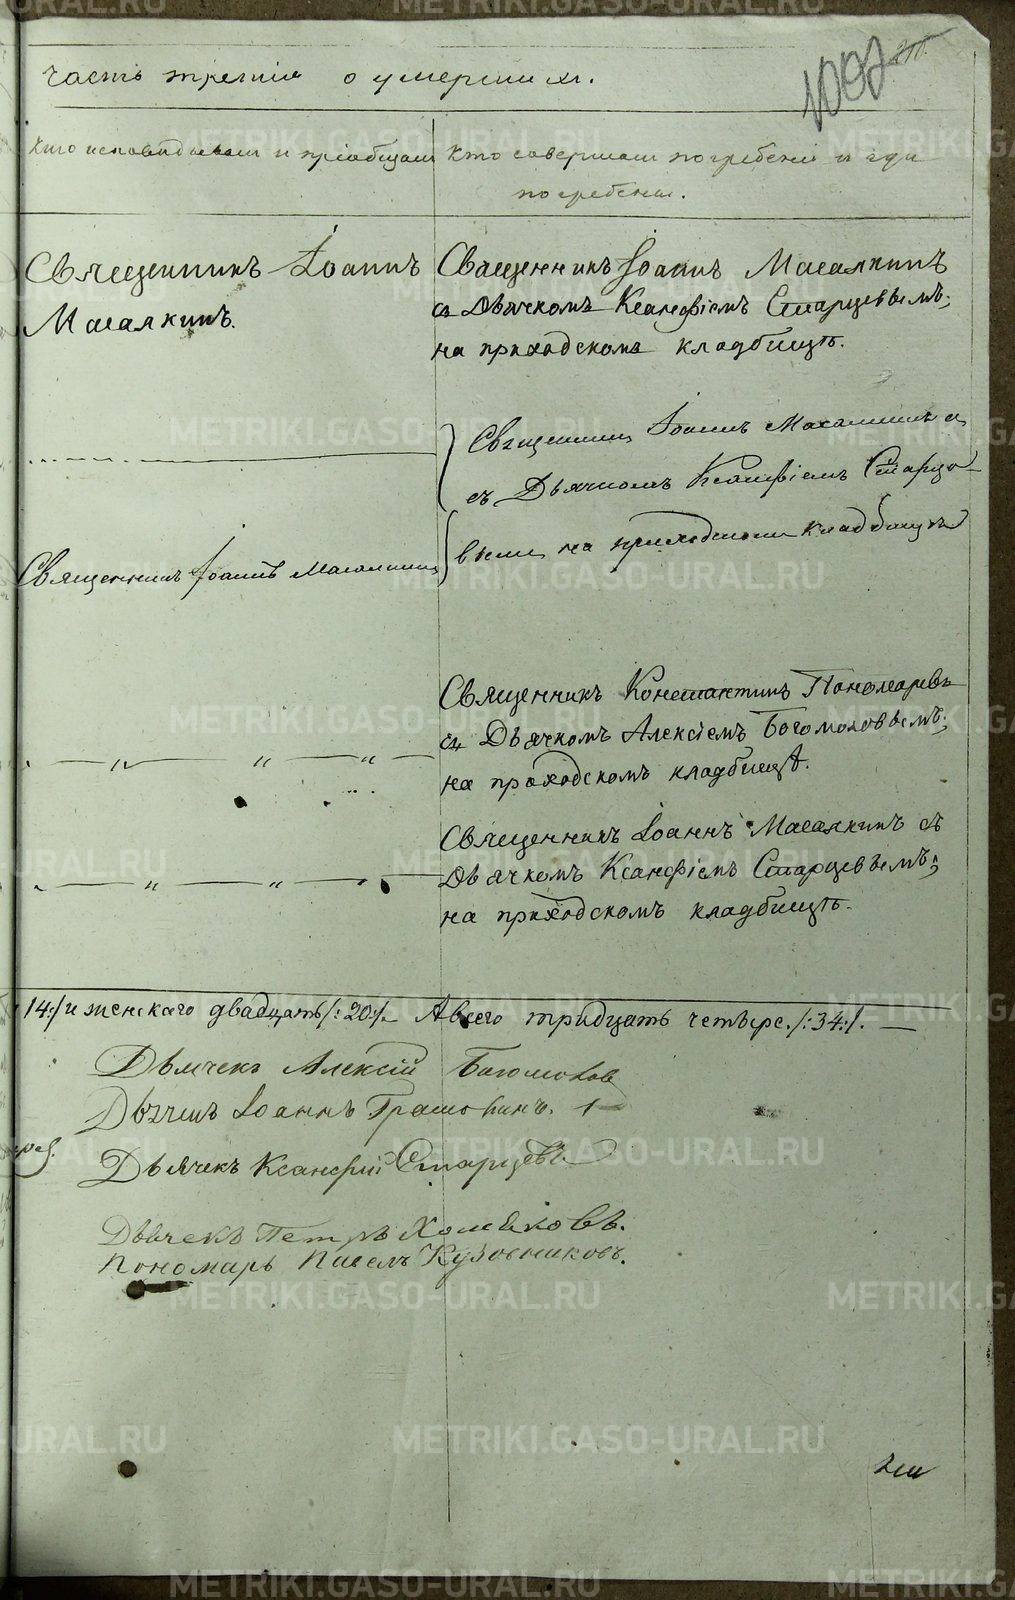 часть третия о умерших.
1002
Кто исповедывал и приобщал
Кто совершал погребение и где
погребены.
Священникъ Іоаннъ
Масалкинъ.
Священникъ Іоаннъ Масалкинъ
съ Дьячкомъ Ксанфіемъ Старцевымъ;
на приходскомъ кладбищѣ.
Священникъ Іоаннъ Масалкинъ
съ Дьячкомъ Ксанфіемъ Старце-
вымъ на приходскомъ кладбищѣ
Священникъ Іоаннъ Масалкинъ
Священникъ Константинъ Пономаревъ
съ Дьячкомъ Алексіемъ Богомоловымъ;
на приходскомъ кладбищѣ.
Священникъ Іоаннъ Масалкинъ съ
Дьячкомъ Ксанфіемъ Старцевымъ;
на приходскомъ кладбищѣ.
14:/ и женскаго двадцать /:20:/. А всего тридцать четыре. /:34:/.
Дьячекъ Алексій Богомолов
Дьячекъ Іоаннъ Грамолинъ.
Дьячекъ Ксанфій Старцевъ
Дьячекъ Петръ Хомяковъ.
Пономарь Павелъ Кузовниковъ.
METRIKI.GASO-URAL.RU